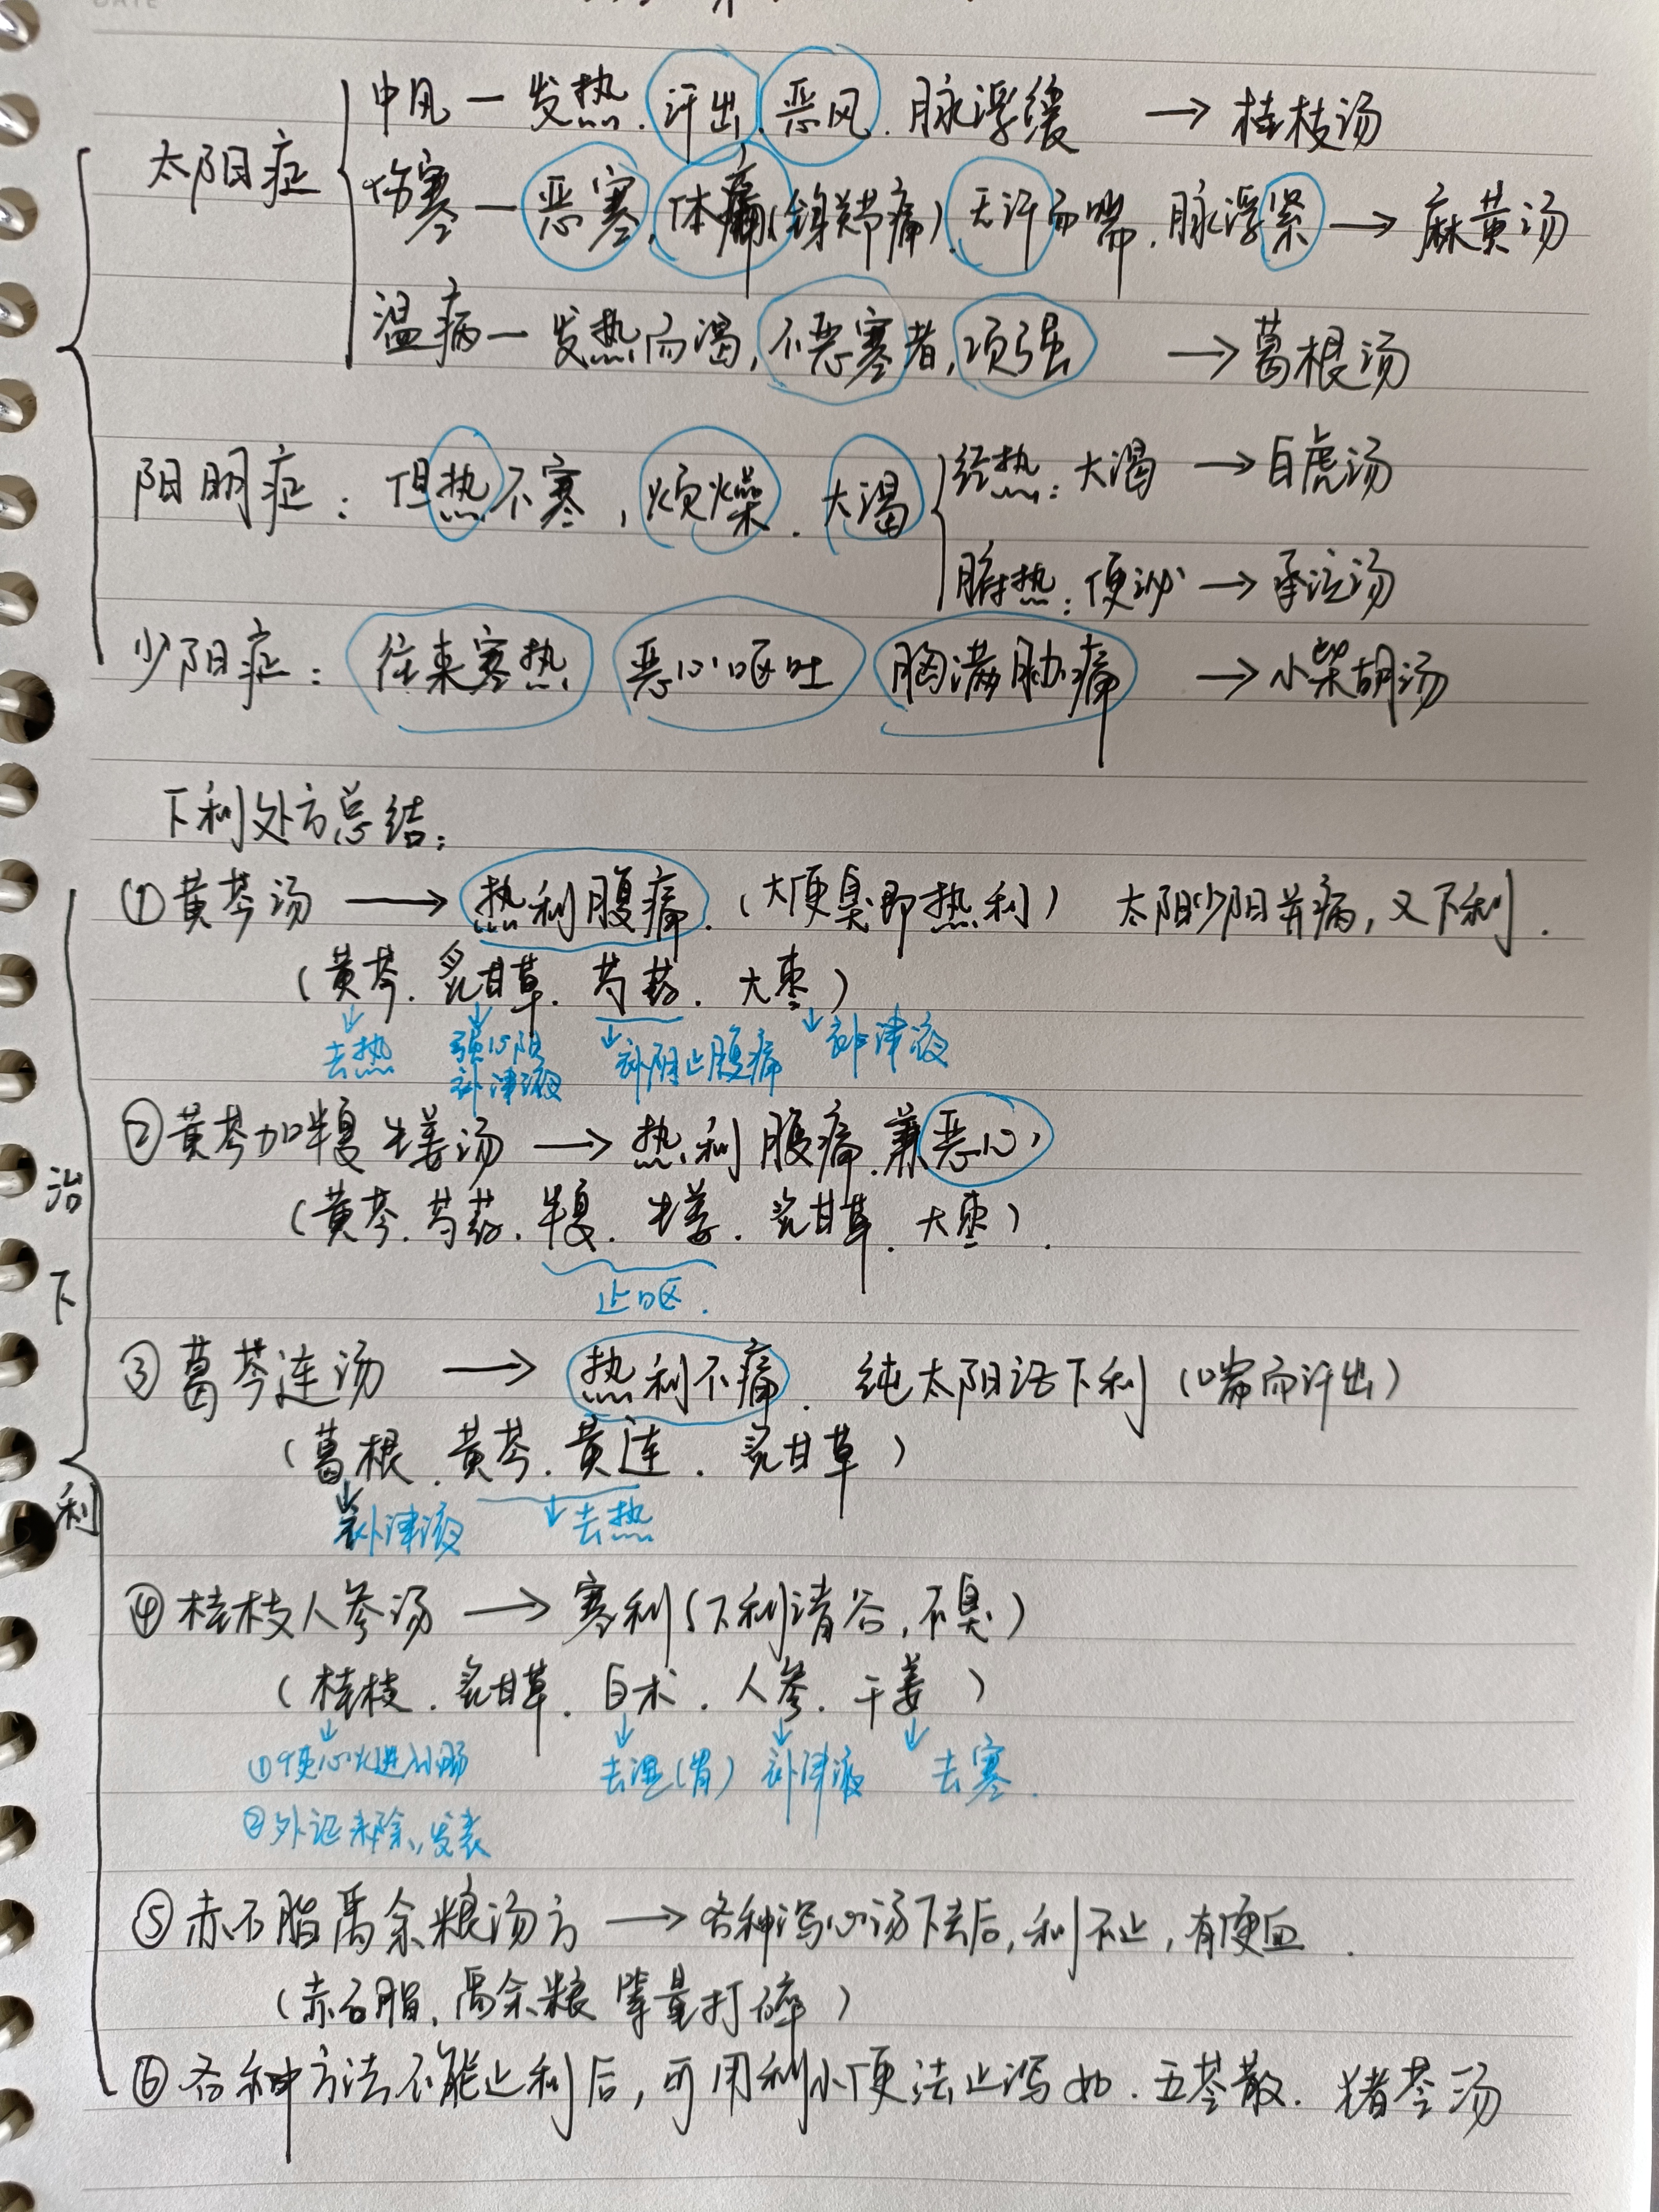 DATE
中风 — 发热.汗出.恶风.脉浮缓 → 桂枝汤
太阳症
伤寒 — 恶寒,体痛(全身关节痛).无汗而喘.脉浮紧 → 麻黄汤
温病 — 发热而渴,不恶寒者,项强 → 葛根汤
阳明症:但热不寒,烦燥.大渴
经热:大渴 → 白虎汤
腑热:便泌 → 承气汤
少阳症:往来寒热 恶心呕吐 胸满胁痛 → 小柴胡汤
下利处方总结:
①黄芩汤 → 热利腹痛.(大便臭即热利) 太阳少阳并病,又下利.
(黄芩.炙甘草.芍药.大枣)
↓去热 ↓强心阳 ↓补阴止腹痛 ↓补津液
补津液
②黄芩加半夏生姜汤 → 热利腹痛.兼恶心
(黄芩.芍药.半夏.生姜.炙甘草.大枣).
止呕.
治下利
③葛芩连汤 → 热利不痛. 纯太阳证下利(喘而汗出)
(葛根.黄芩.黄连.炙甘草)
↓补津液 ↓去热
④桂枝人参汤 → 寒利(下利清谷,不臭)
(桂枝.炙甘草.白术.人参.干姜)
↓ ↓ ↓ ↓
①使心火进小肠 去湿(胃) 补津液 去寒.
②外证未除,发表
⑤赤石脂禹余粮汤方 → 各种泻心汤下去后,利不止,有便血.
(赤石脂.禹余粮 等量打碎)
⑥各种方法不能止利后,可用利小便法止泻如.五苓散.猪苓汤